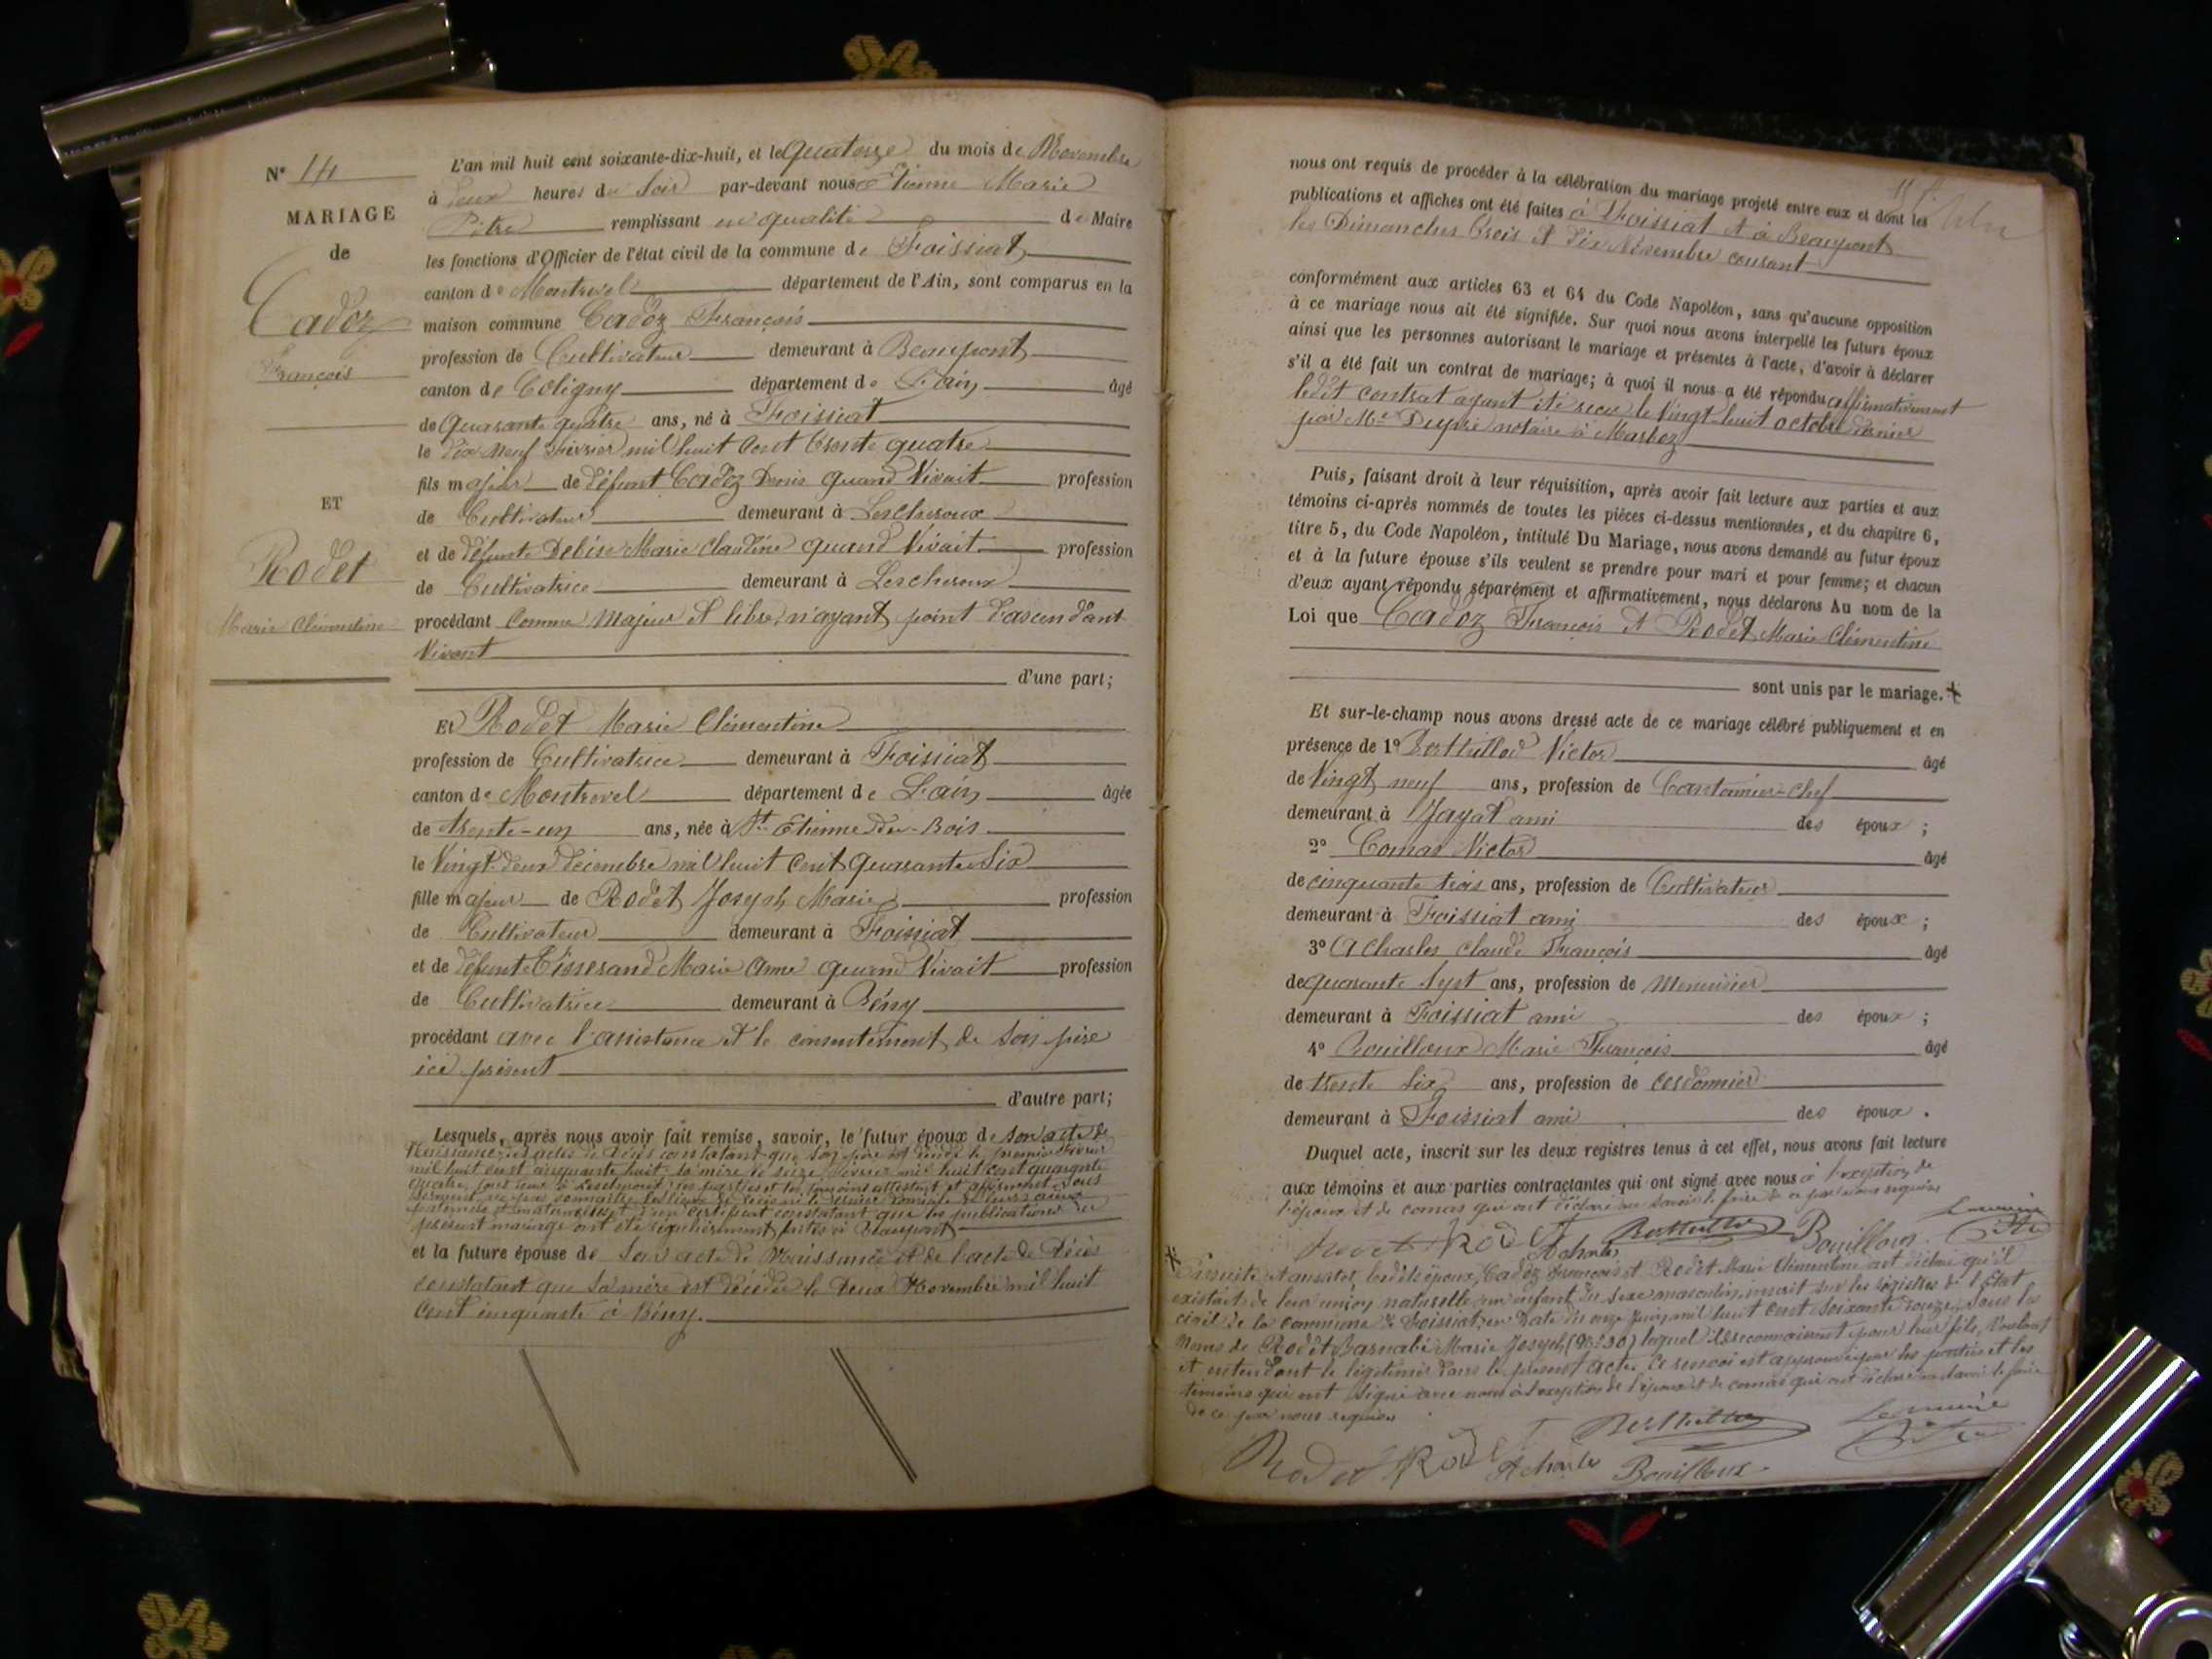 N° 14
MARIAGE
de
Cadoz
François
ET
Rodet
Marie Clémentine
L'an mil huit cent soixante-dix-huit, et le quatorze du mois de Novembre
à deux heures du soir par-devant nous Etienne Marie
Pitre remplissant en qualité de Maire
les fonctions d'Officier de l'état civil de la commune de Foissiat
canton de Montrevel département de l'Ain, sont comparus en la
maison commune Cadoz François
profession de Cultivateur demeurant à Beaupont
canton de Coligny département de L'ain âgé
de Quarante quatre ans, né à Foissiat
le dix neuf Février mil huit cent trente quatre
fils majeur de défunt Cadoz Denis quand vivait profession
de Cultivateur demeurant à Lescheroux
et de défunte Debise Marie Claudine quand vivait profession
de Cultivatrice demeurant à Lescheroux
procédant comme majeur et libre, n'ayant point d'ascendant
vivant
d'une part;
Et Rodet Marie Clémentine
profession de Cultivatrice demeurant à Foissiat
canton de Montrevel département de L'ain âgée
de trente-un ans, née à St Etienne-du-Bois
le vingt-deux décembre mil huit cent quarante six
fille majeur de Rodet Joseph Marie profession
de Cultivateur demeurant à Foissiat
et de défunte Tisserand Marie Anne quand vivait profession
de Cultivatrice demeurant à Bény
procédant avec l'assistance et le consentement de son père
ici présent
d'autre part;
Lesquels, après nous avoir fait remise, savoir, le futur époux de son acte de
Naissance, des actes de décès constatant que son père est décédé le premier Février
mil huit cent cinquante huit, sa mère le seize février mil huit cent quarante
quatre, tous deux à Lescheroux, les parties et les témoins attestent et affirment sous
serment ne pas connaître le lieu de décès ni le dernier domicile de leurs aïeux
paternels et maternels et d'un certificat constatant que les publications du
présent mariage ont été régulièrement faites à Beaupont
et la future épouse de son acte de Naissance et de l'acte de décès
constatant que sa mère est décédée le deux Novembre mil huit
cent cinquante à Bény.
nous ont requis de procéder à la célébration du mariage projeté entre eux et dont les
publications et affiches ont été faites à Foissiat et à Beaupont
les Dimanches trois et dix Novembre courant
conformément aux articles 63 et 64 du Code Napoléon, sans qu'aucune opposition
à ce mariage nous ait été signifiée. Sur quoi nous avons interpellé les futurs époux
ainsi que les personnes autorisant le mariage et présentes à l'acte, d'avoir à déclarer
s'il a été fait un contrat de mariage; à quoi il nous a été répondu affirmativement
ledit contrat ayant été reçu le vingt-huit octobre dernier
par Me Dupré notaire à Marboz
Puis, faisant droit à leur réquisition, après avoir fait lecture aux parties et aux
témoins ci-après nommés de toutes les pièces ci-dessus mentionnées, et du chapitre 6,
titre 5, du Code Napoléon, intitulé Du Mariage, nous avons demandé au futur époux
et à la future épouse s'ils veulent se prendre pour mari et pour femme; et chacun
d'eux ayant répondu séparément et affirmativement, nous déclarons Au nom de la
Loi que Cadoz François et Rodet Marie Clémentine
sont unis par le mariage. +
Et sur-le-champ nous avons dressé acte de ce mariage célébré publiquement et en
présence de 1° Victor âgé
de Vingt neuf ans, profession de Cantonnier-chef
demeurant à Jayat ami des époux ;
2° Comas Victor âgé
de cinquante trois ans, profession de Cultivateur
demeurant à Foissiat ami des époux ;
3° Acharles Claude François âgé
de quarante sept ans, profession de Menuisier
demeurant à Foissiat ami des époux ;
4° Bouilloux Marie François âgé
de trente six ans, profession de cordonnier
demeurant à Foissiat ami des époux .
Duquel acte, inscrit sur les deux registres tenus à cet effet, nous avons fait lecture
aux témoins et aux parties contractantes qui ont signé avec nous à l'exception de
l'époux et de comas qui ont déclaré ne savoir le faire de ce par nous requis
Rodet Rodet Acharles Bouilloux Le maire
Pitre
+ Ensuite et aussitôt lesdits époux, Cadoz François et Rodet Marie Clémentine ont déclaré qu'il
existait de leur union naturelle un enfant du sexe masculin, inscrit sur les registres de l'Etat
civil de la commune de Foissiat, en date du onze Juin mil huit cent soixante, sous les
Noms de Rodet Barnabé Marie Joseph (N° 30) lequel ils reconnaissent pour leur fils, voulant
et entendant le légitimer dans le présent acte. Ce renvoi est approuvé par les parties et les
témoins qui ont signé avec nous à l'exception de l'époux et de comas qui ont déclaré ne savoir le faire
de ce par nous requis
Rodet Rodet Acharles Bouilloux Le maire
Pitre